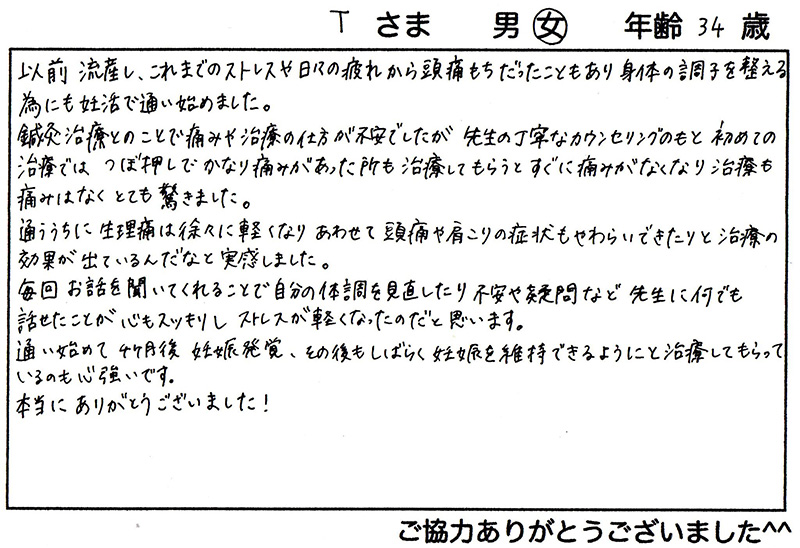 T さま 男 女 年齢 34 歳
以前 流産し、これまでのストレスや日々の疲れから頭痛もちだったこともあり 身体の調子を整える
為にも妊活で通い始めました。
鍼灸治療とのことで痛みや治療の仕方が不安でしたが 先生の丁寧なカウンセリングのもと 初めての
治療では つぼ押しでかなり痛みがあった所も治療してもらうとすぐに痛みがなくなり治療も
痛みはなくとても驚きました。
通ううちに生理痛は徐々に軽くなり あわせて頭痛や肩こりの症状もやわらいできたりと治療の
効果が出ているんだなと実感しました。
毎回 お話を聞いてくれることで自分の体調を見直したり 不安や疑問など 先生に何でも
話せたことが心もスッキリし ストレスが軽くなったのだと思います。
通い始めて 4ヶ月後 妊娠発覚、その後もしばらく妊娠を維持できるようにと治療してもらって
いるのも心強いです。
本当に ありがとうございました！
ご協力ありがとうございました^^